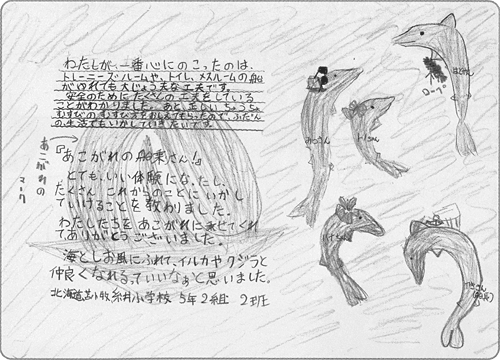 わたしが、一番心にのこったのは、
トレーニーズルームや、トイレ、メスルームの船
がゆれても大じょう夫な工夫です。
安全のためにたくさんの工夫をしている
ことがわかりました。あと、正しいちょうちょ
むすびのむすび方をおしえてもらったので、ふだん
の生活でもいかしていきたいです。
あこがれの
マーク
『あこがれの船乗さん!』
とても、いい体験になったし、
たくさんこれからのことにいかし
ていけることを教わりました。
わたしたちをあこがれに乗せてくれ
てありがとうございました。
海としお風にふれて、イルカやクジラと
仲良くなれるっていいなぁと思いました。
北海道苫小牧糸井小学校 5年2組 2班
ロープ